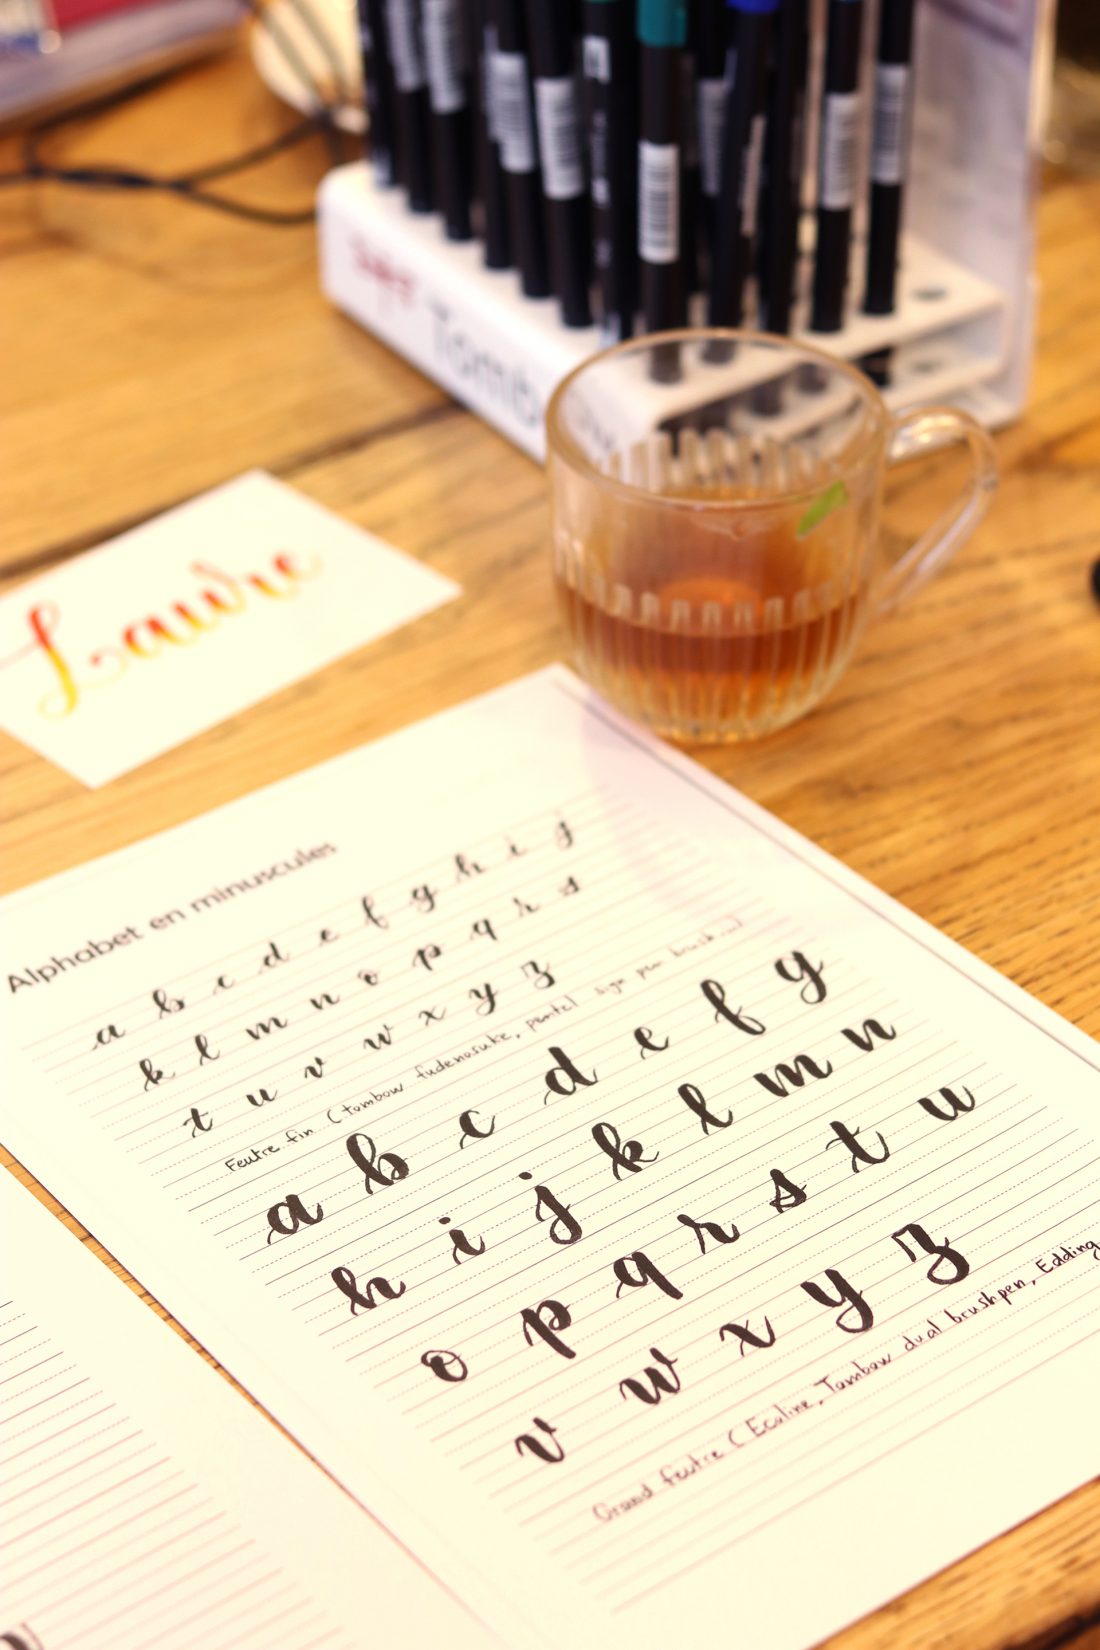 Tomb
Laure
Alphabet en minuscules
a b c d e f g h i j
k l m n o p q r s
t u v w x y z
Feutre fin (tombow fudenosuke, pentel sign pen brush ...)
a b c d e f g
h i j k l m n
o p q r s t u
v w x y z
Grand feutre ( Ecoline, Tombow dual brushpen, Edding